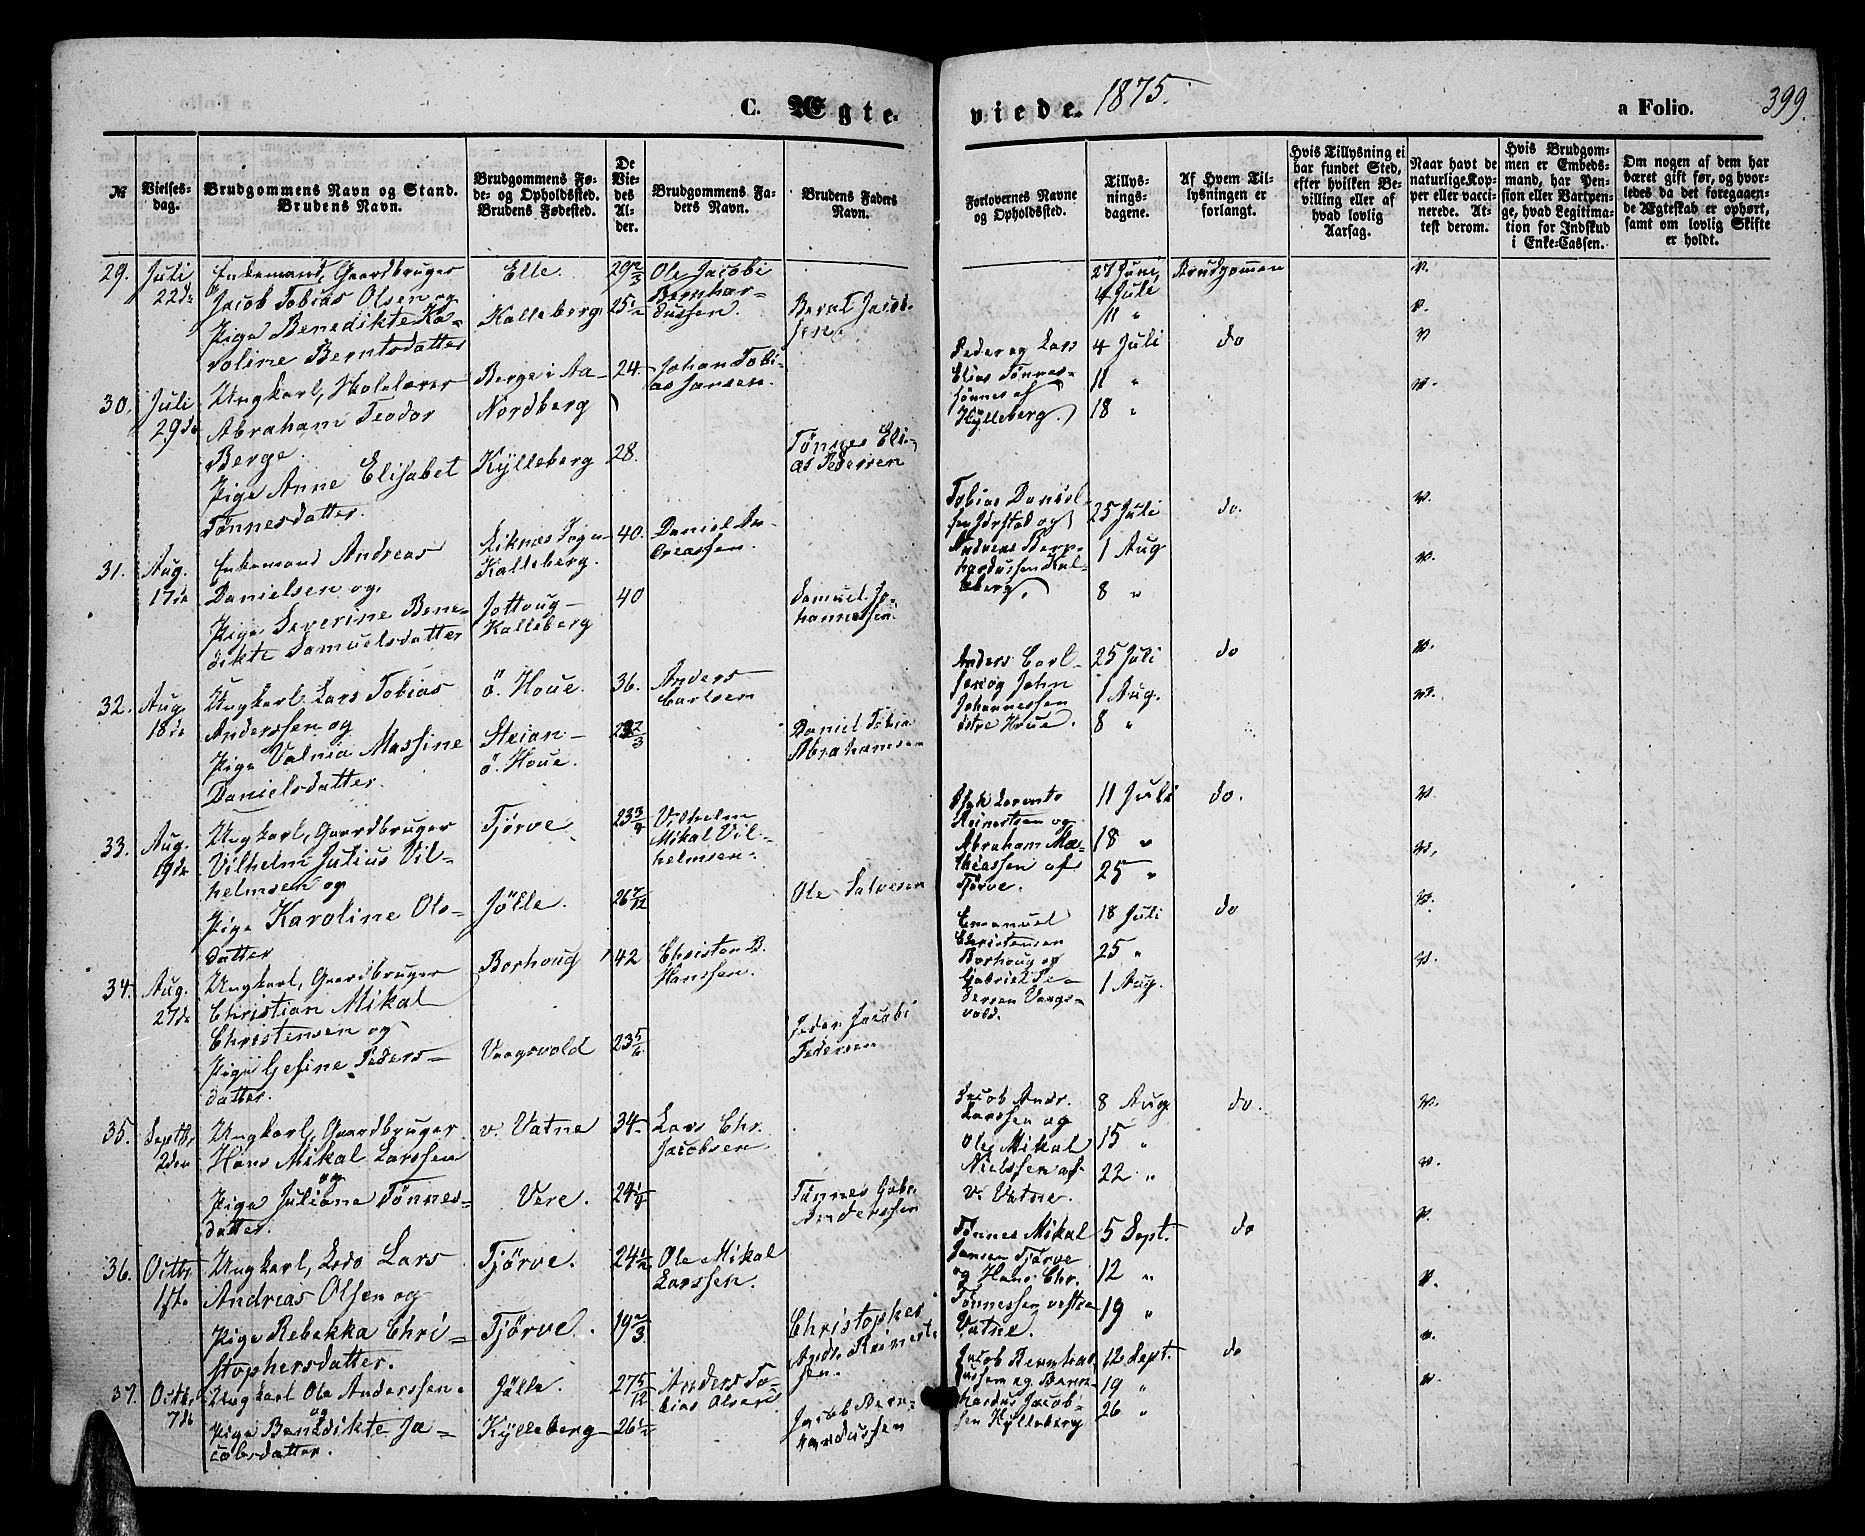 C. Ægte
viede. 1875.
a Folio. 399.
№
Vielses-
dag.
Brudgommens Navn og Stand.
Brudens Navn.
Brudgommens Fø-
de- og Opholdssted.
Brudens Fødested.
De
Vie-
des
Al-
der.
Brudgommens Fa-
ders Navn.
Brudens Faders
Navn.
Forlovernes Navne
og Opholdssted.
Tillys-
nings-
dagene.
Af Hvem Til-
lysningen er
forlangt.
Hvis Tillysning ei
har fundet Sted,
efter hvilken Be-
villing eller af
hvad lovlig
Aarsag.
Naar havt de
naturlige Kop-
per eller vacci-
nerede. At-
test derom.
Hvis Brudgom-
men er Embeds-
mand, har Pen-
sion eller Vartpen-
ge, hvad Legitima-
tion for Indskud
i Enke-Cassen.
Om nogen af dem har
været gift før, og hvor-
ledes da det foregaaen-
de Ægteskab er ophørt,
samt om lovlig Skifte
er holdt.
29. Juli
22de
Enkemand, Gaardbruger
Jacob Tobias Olsen og
Pige Benedikte Ka-
roline Berntsdatter
Elle.
Kalleberg
29 2/3
25 1/2
Ole Jacobi
Bernhar-
dussen.
Bernt Jacob-
sen.
27 Juni,
4 Juli
11 "
Brudgommen
v.
v.
30. Juli
29de
Ungkarl, Holelærer
Abraham Teodor
Berge.
Pige Anne Elisabet
Tønnesdatter.
Berge i Aa-
Nordberg
Kylleberg
24.
28.
Johan Tobi-
as Jansen.
Tønnes Eli-
as Pedersen
Peder og Lars
Elias Tønnes-
sønner af
Kylleberg.
4 Juli
11 "
18 "
do
v
v.
31. Aug.
17de
Enkemand Andreas
Danielsen og
Pige Severine Bene-
dikte Samuelsdatter
Liknes Sogn-
Kalleberg.
Jottoug-
Kalleberg
40.
40
Daniel An-
dreassen.
Samuel Jo-
hannessen.
Tobias Daniel-
sen Jørstad og
Andreas Bern-
hardussen Kal-
leberg.
25 Juli
1 Aug
8 "
do.
v.
v.
32. Aug.
18de
Ungkarl Lars Tobias
Anderssen og
Pige Valnia Massine
Danielsdatter.
ö. Houe.
Steian-
ö. Houe.
36.
Anders
Carlsen
Daniel Tobia
Abrahamsen
Anders Carl-
sen og John
Johannessen
østre Houe.
25 Juli
1 Aug.
8 "
do
v.
v.
33. Aug.
19de
Ungkarl, Gaardbruger
Vilhelm Julius Vil-
helmsen og
Pige Karoline Ols-
datter
Tjörve
Jölle.
23 3/4
26 7/12
Vilhelm
Mikal Vil-
helmsen.
Ole Salvesen
Lorents
Reinertsen og
Abraham Ma-
thiassen af
Tjørve.
11 Juli
18 "
25 "
do.
v.
v,
34. Aug.
27de
Ungkarl, Gaardbruger
Christian Mikal
Christensen og
Pige Gesine Peders-
datter.
Borhoug
Vaagsvold
42
23 5/6
Christen B.
Hanssen.
Peder Jacobi
Pedersen
Emanuel
Christensen
Borhoug og
Gabriel Pe-
dersen Vaags-
vold.
18 Juli
25 "
1 Aug.
do
v.
v.
35. Septbr
2den
Ungkarl, Gaardbruger
Hans Mikal Larssen
og
Pige Juliane Tønnes-
datter.
v. Vatne
Vere.
34
24 1/4
Lars Chr.
Jacobsen
Tønnes Gabr.
Anderssen
Jacob Andr.
Larssen og
Ole Mikal
Nielssen af
v. Vatne.
8 Aug
15 "
22 "
do.
v.
v.
36. Octbr
1ste
Ungkarl, Lods Lars
Andreas Olsen og
Pige Rebekka Chri-
stophersdatter.
Tjørve.
Tjørve.
24 1/2
19 2/3
Ole Mikal
Larssen.
Christopher
Andr. Reinert-
sen.
Tønnes Mikal
Jansen Tjørve
og Hans Chr.
Tønnessen vestre
Vatne.
5 Sept.
12 "
19 "
do
v.
v.
37. Octbr
7de
Ungkarl Ole Anderssen
og
Pige Benedikte Ja-
cobsdatter.
Jölle.
Kylleberg
27 5/12
26 1/2
Anders To-
bias Olsen
Jacob Bern-
hardussen
Jacob Bernhar-
dussen og Bern-
hardus Jacob-
sen Kylleberg
12 Sept.
19 "
26 "
do
v.
v.